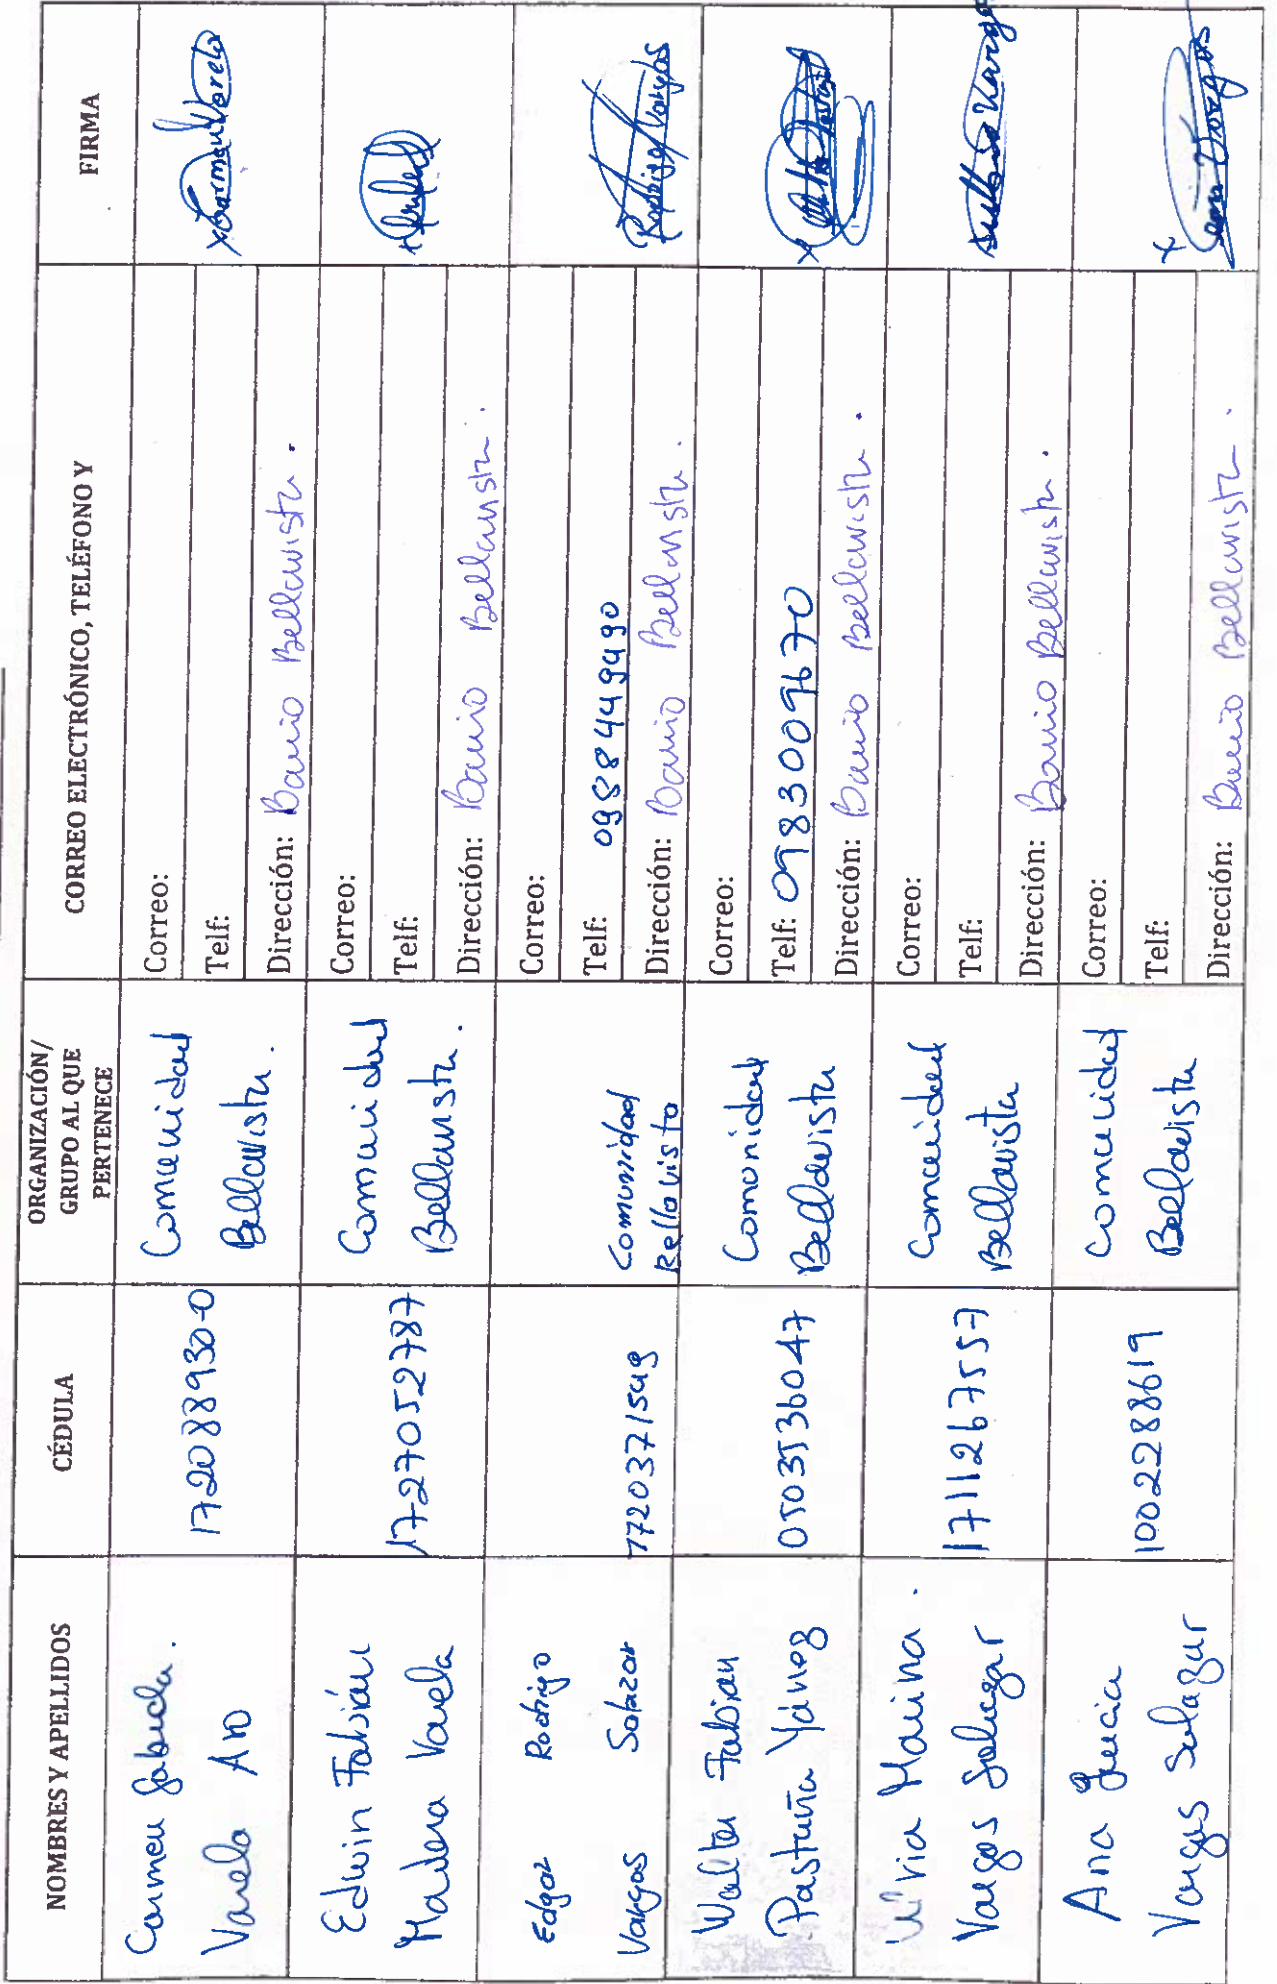 NOMBRES Y APELLIDOS
CÉDULA
ORGANIZACIÓN/
GRUPO AL QUE
PERTENECE
CORREO ELECTRÓNICO, TELÉFONO Y
FIRMA
Carmen Gabriela.
Varela
172088930-0
Comunidad
Bellavista.
Correo:
Telf:
Dirección: Barrio Bellavista.
Carmen Varela
Edwin Fabián
Madera Varela
1727052787
Comunidad
Bellavista.
Correo:
Telf:
Dirección: Barrio Bellavista.
Edgar Rodrigo
Vargas Salazar
1720371549
Comunidad
Bellavista
Correo:
Telf: 0988449490
Dirección: Barrio Bellavista.
Rodrigo Vargas
Walter Fabian
Pastuña Yánez
0503536047
Comunidad
Bellavista
Correo:
Telf: 0983009670
Dirección: Barrio Bellavista.
Marina.
Vargas Salazar
1711267557
Comunidad
Bellavista
Correo:
Telf:
Dirección: Barrio Bellavista.
Vargas
Ana Lucia
Vargas Salazar
1002288619
Comunidad
Bellavista
Correo:
Telf:
Dirección: Barrio Bellavista.
Vargas